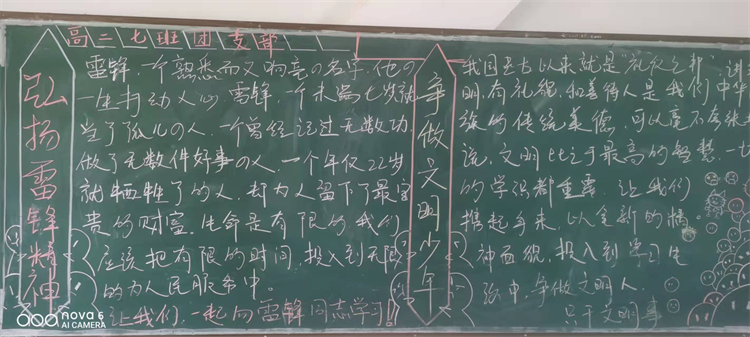 高二七班团支部
弘扬雷锋精神
雷锋,一个熟悉而又响亮の名字,他の
一生打动人心 雷锋,一个未满七岁就
当了孤儿の人,一个曾经立过无数功,
做了无数件好事の人,一个年仅22岁
就牺牲了的人,却为人留下了最宝
贵的财富,生命是有限的我们
应该把有限的时间,投入到无限
的为人民服务中。
让我们,一起向雷锋同志学习!!
争做文明少年
我国至古以来就是"礼仪之邦",讲
明,有礼貌,和善待人是我们中华
族的传统美德,可以毫不夸张
说,文明比之于最高的智慧,一
的学识都重要,让我们
携起手来,以全新的精
神面貌,投入到学习生
活中,争做文明人,
只干文明事
nova 6
AI CAMERA